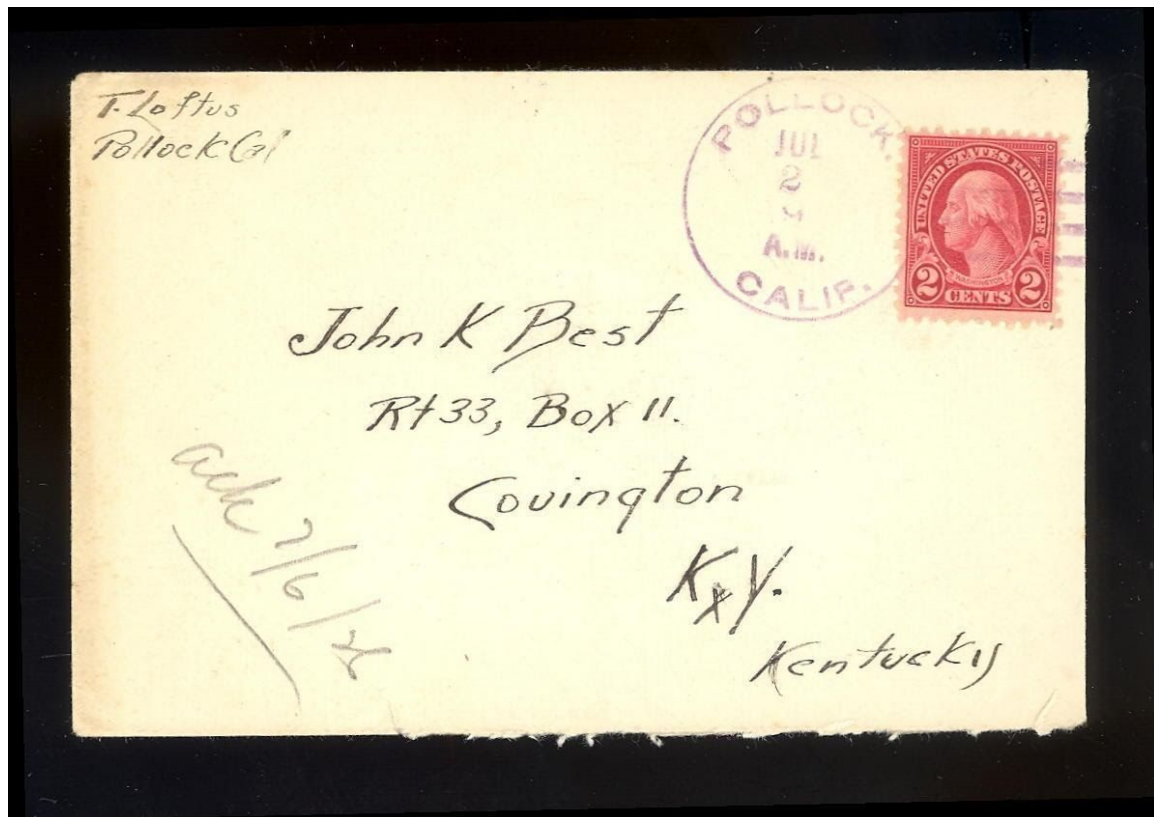 T. Loftus
Pollock Cal
POLLOCK,
JUL
2
A.M.
CALIF.
UNITED STATES POSTAGE
WASHINGTON
2 CENTS 2
John K Best
Rt 33, Box 11.
Covington
Ky.
Kentucky
ack 7/6/26